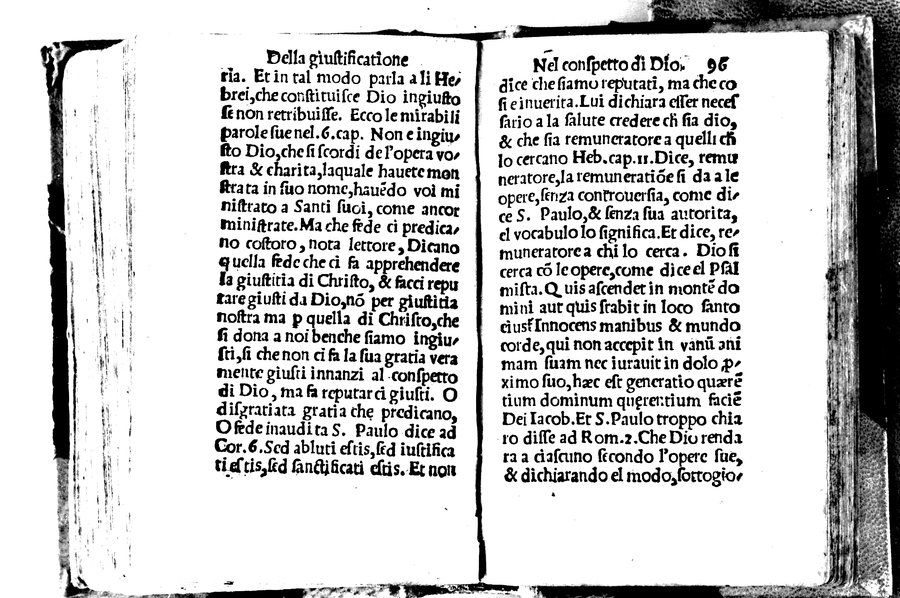 Della giustificatione
ria. Et in tal modo parla a li He-
brei, che constituisce Dio ingiusto
se non retribuisse. Ecco le mirabili
parole sue nel.6.cap. Non e ingiu-
sto Dio, che si scordi de l'opera vo-
stra & charita, laquale hauete mon
strata in suo nome, hauẽdo voi mi
nistrato a Santi suoi, come ancor
ministrate. Ma che fede ci predica-
no costoro, nota lettore, Dicano
quella fede che ci fa apprehendere
la giustitia di Christo, & facci repu
tare giusti da Dio, nõ per giustitia
nostra ma p quella di Christo, che
si dona a noi benche siamo ingiu-
sti, si che non ci fa la sua gratia vera
mente giusti innanzi al conspetto
di Dio, ma fa reputarci giusti. O
disgratiata gratia che predicano,
O fede inaudita S. Paulo dice ad
Cor.6. Sed abluti estis, sed iustifica
ti estis, sed sanctificati estis. Et non
Nel conspetto di Dio. 96
dice che siamo reputati, ma che co
si e inuerita. Lui dichiara esser neces
sario a la salute credere ch̃ sia dio,
& che sia remuneratore a quelli ch̃
lo cercano Heb.cap.11. Dice, remu
neratore, la remuneratiõe si da a le
opere, senza controuersia, come di-
ce S. Paulo, & senza sua autorita,
el vocabulo lo significa. Et dice, re-
muneratore a chi lo cerca. Dio si
cerca cõ le opere, come dice el Psal
mista. Quis ascendet in montẽ do
mini aut quis stabit in loco santo
eius? Innocens manibus & mundo
corde, qui non accepit in vanũ ani
mam suam nec iurauit in dolo ꝓ-
ximo suo, hæc est generatio quærẽ
tium dominum quęrentium faciẽ
Dei Iacob. Et S. Paulo troppo chia
ro disse ad Rom.2. Che Dio renda
ra a ciascuno secondo l'opere sue,
& dichiarando el modo, sottogio-